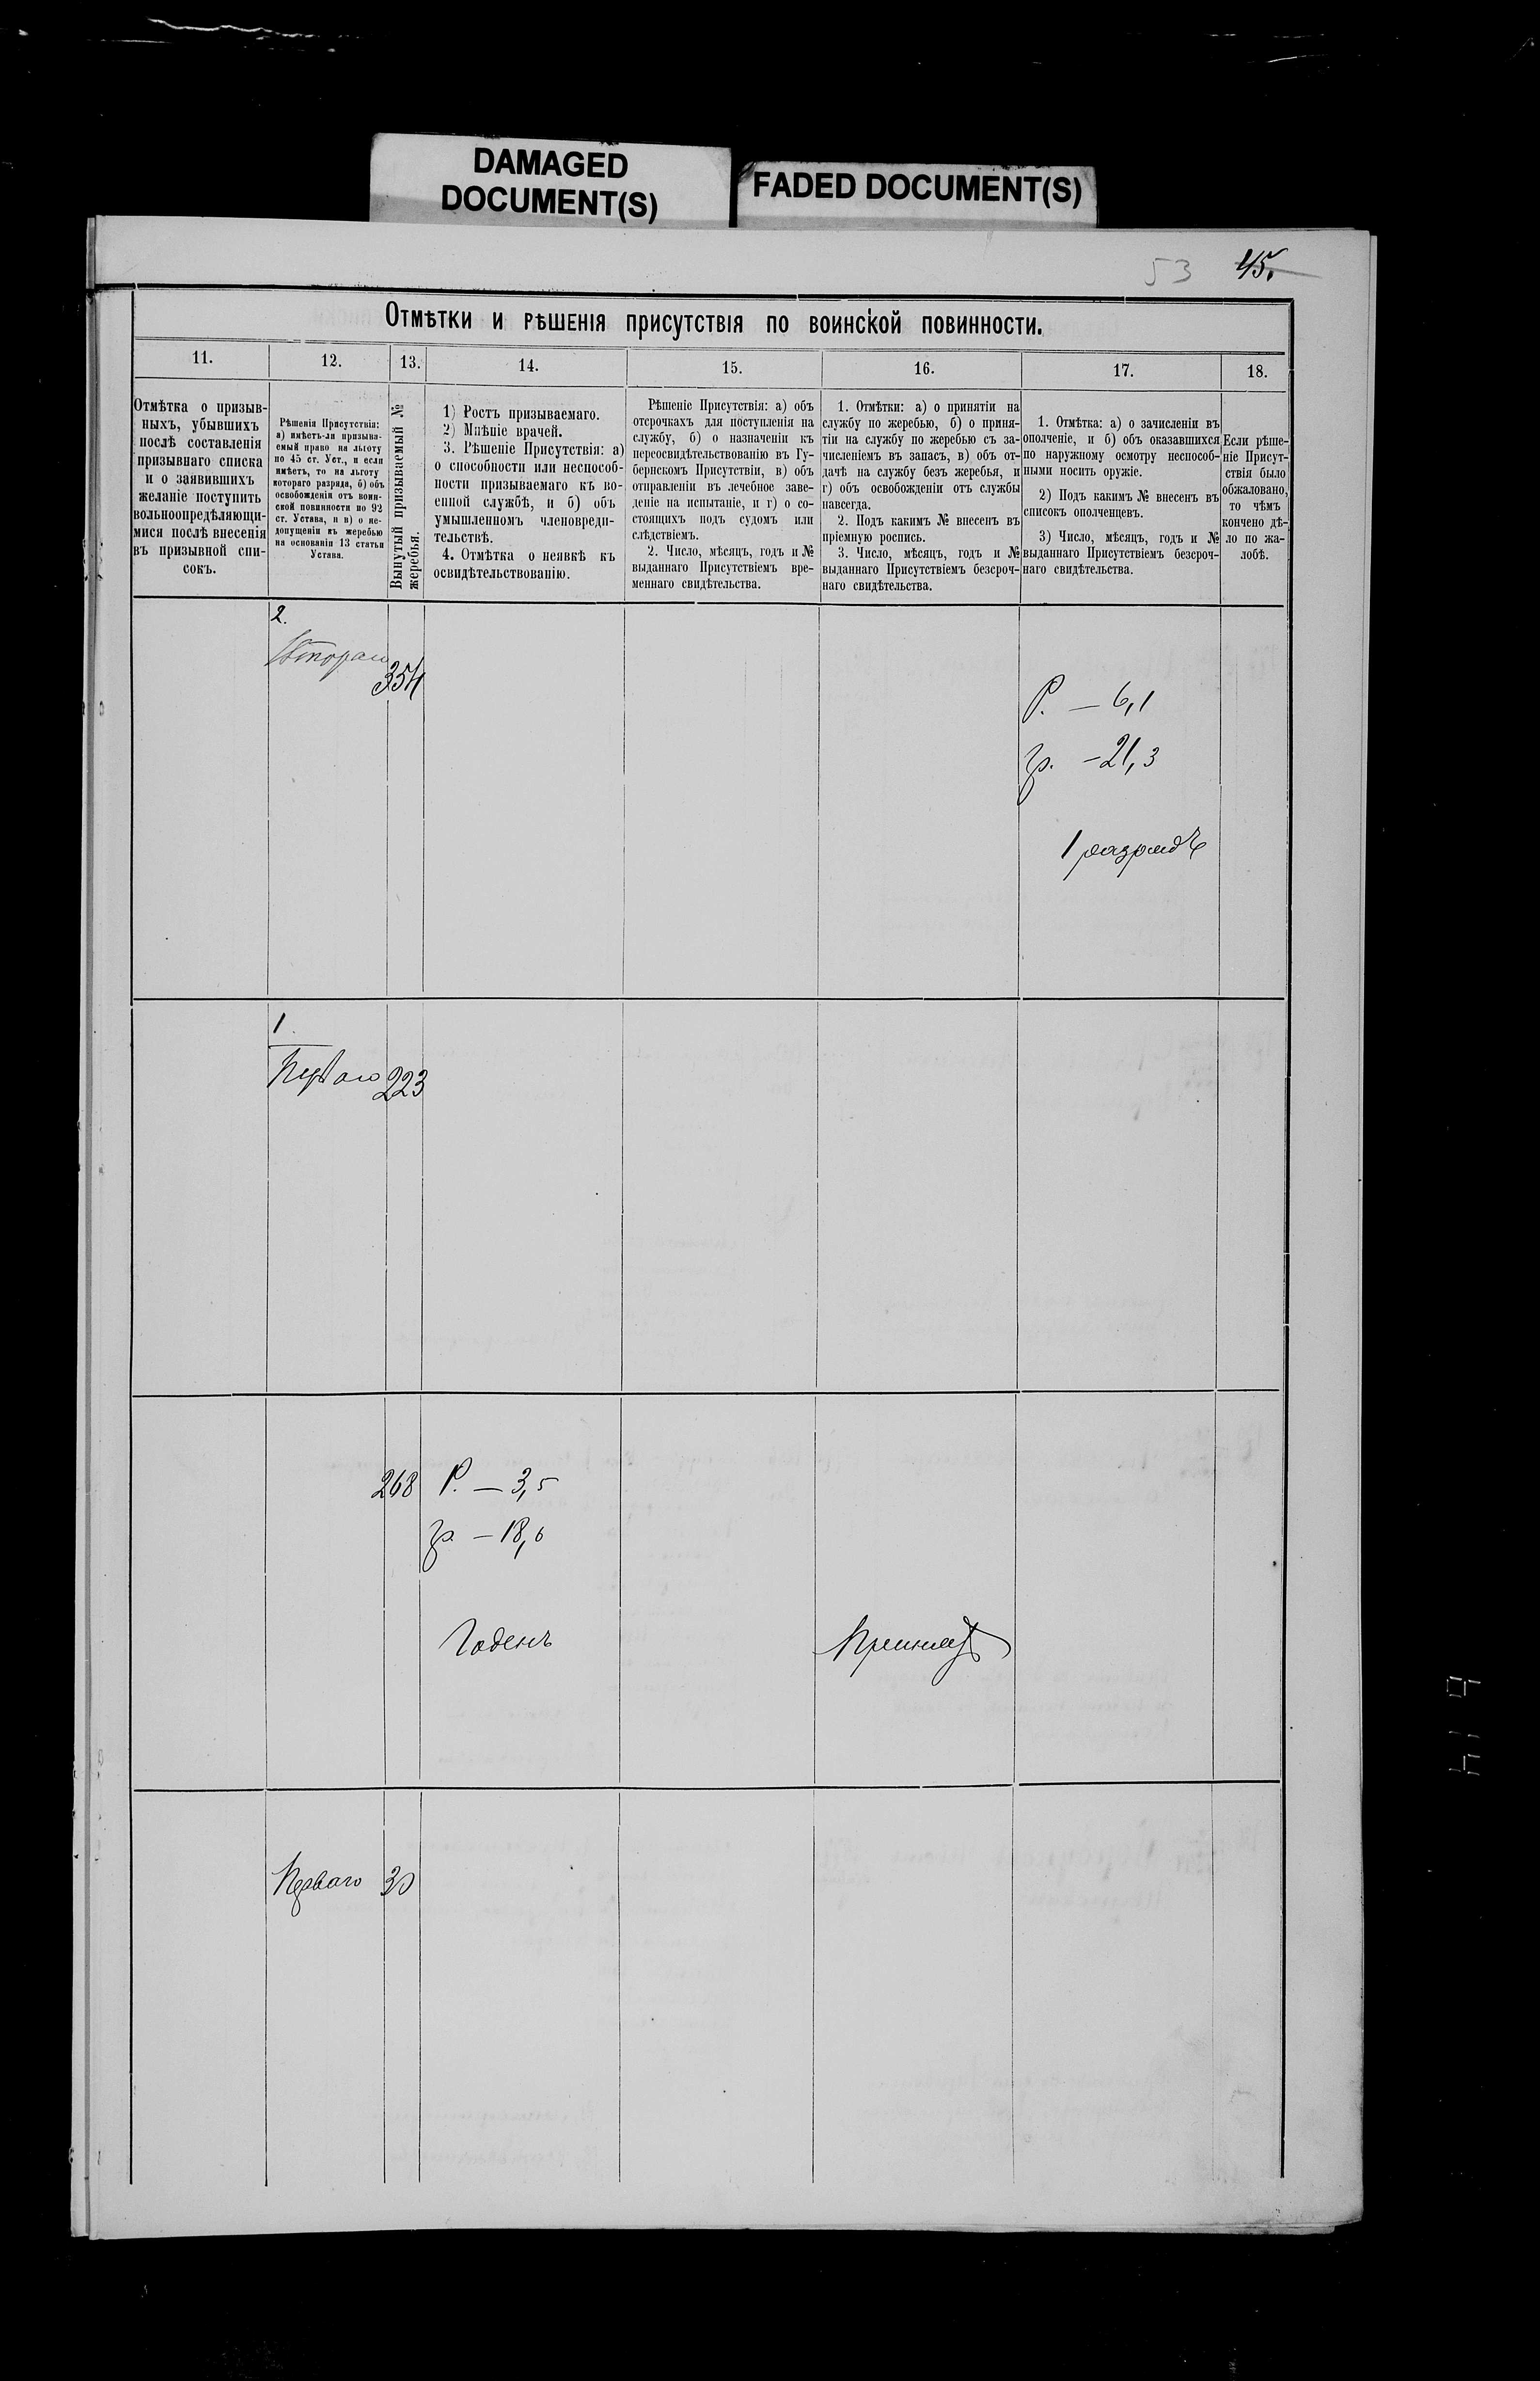 DAMAGED
DOCUMENT(S)
FADED DOCUMENT(S)
53 45.
Отмѣтки и рѣшенія присутствія по воинской повинности.
11.
12.
13.
14.
15.
16.
17.
18.
Отмѣтка о призыв-
ныхъ, убывшихъ
послѣ составленія
призывнаго списка
и о заявившихъ
желаніе поступить
вольноопредѣляющи-
мися послѣ внесенія
въ призывной спи-
сокъ.
Рѣшенія Присутствія:
а) имѣетъ-ли призыва-
емый право на льготу
по 45 ст. Уст., и если
имѣетъ, то на льготу
котораго разряда, б) объ
освобожденіи отъ воин-
ской повинности по 92
ст. Устава, и в) о не-
допущеніи къ жеребью
на основаніи 13 статьи
Устава.
Вынутый призываемый №
жеребья.
1) Ростъ призываемаго.
2) Мнѣніе врачей.
3. Рѣшеніе Присутствія: а)
о способности или неспособ-
ности призываемаго къ во-
енной службѣ, и б) объ
умышленномъ членовреди-
тельствѣ.
4. Отмѣтка о неявкѣ къ
освидѣтельствованію.
Рѣшеніе Присутствія: а) объ
отсрочкахъ для поступленія на
службу, б) о назначеніи къ
переосвидѣтельствованію въ Гу-
бернскомъ Присутствіи, в) объ
отправленіи въ лечебное заве-
деніе на испытаніе, и г) о со-
стоящихъ подъ судомъ или
слѣдствіемъ.
2. Число, мѣсяцъ, годъ и №
выданнаго Присутствіемъ вре-
меннаго свидѣтельства.
1. Отмѣтки: а) о принятіи на
службу по жеребью, б) о приня-
тіи на службу по жеребью съ за-
численіемъ въ запасъ, в) объ от-
дачѣ на службу безъ жеребья, и
г) объ освобожденіи отъ службы
навсегда.
2. Подъ какимъ № внесенъ въ
пріемную роспись.
3. Число, мѣсяцъ, годъ и №
выданнаго Присутствіемъ безсроч-
наго свидѣтельства.
1. Отмѣтка: а) о зачисленіи въ
ополченіе, и б) объ оказавшихся
по наружному осмотру неспособ-
ными носить оружіе.
2) Подъ какимъ № внесенъ въ
списокъ ополченцевъ.
3) Число, мѣсяцъ, годъ и №
выданнаго Присутствіемъ безсроч-
наго свидѣтельства.
Если рѣше-
ніе Присут-
ствія было
обжаловано,
то чѣмъ
кончено дѣ-
ло по жа-
лобѣ.
2.
Втораго
354
Р. — 6,1
гр. — 21,3
1 разрядъ
1
Перваго 223
268 Р. — 3,5
гр. — 18,6
Годенъ
Принятъ
Перваго 30